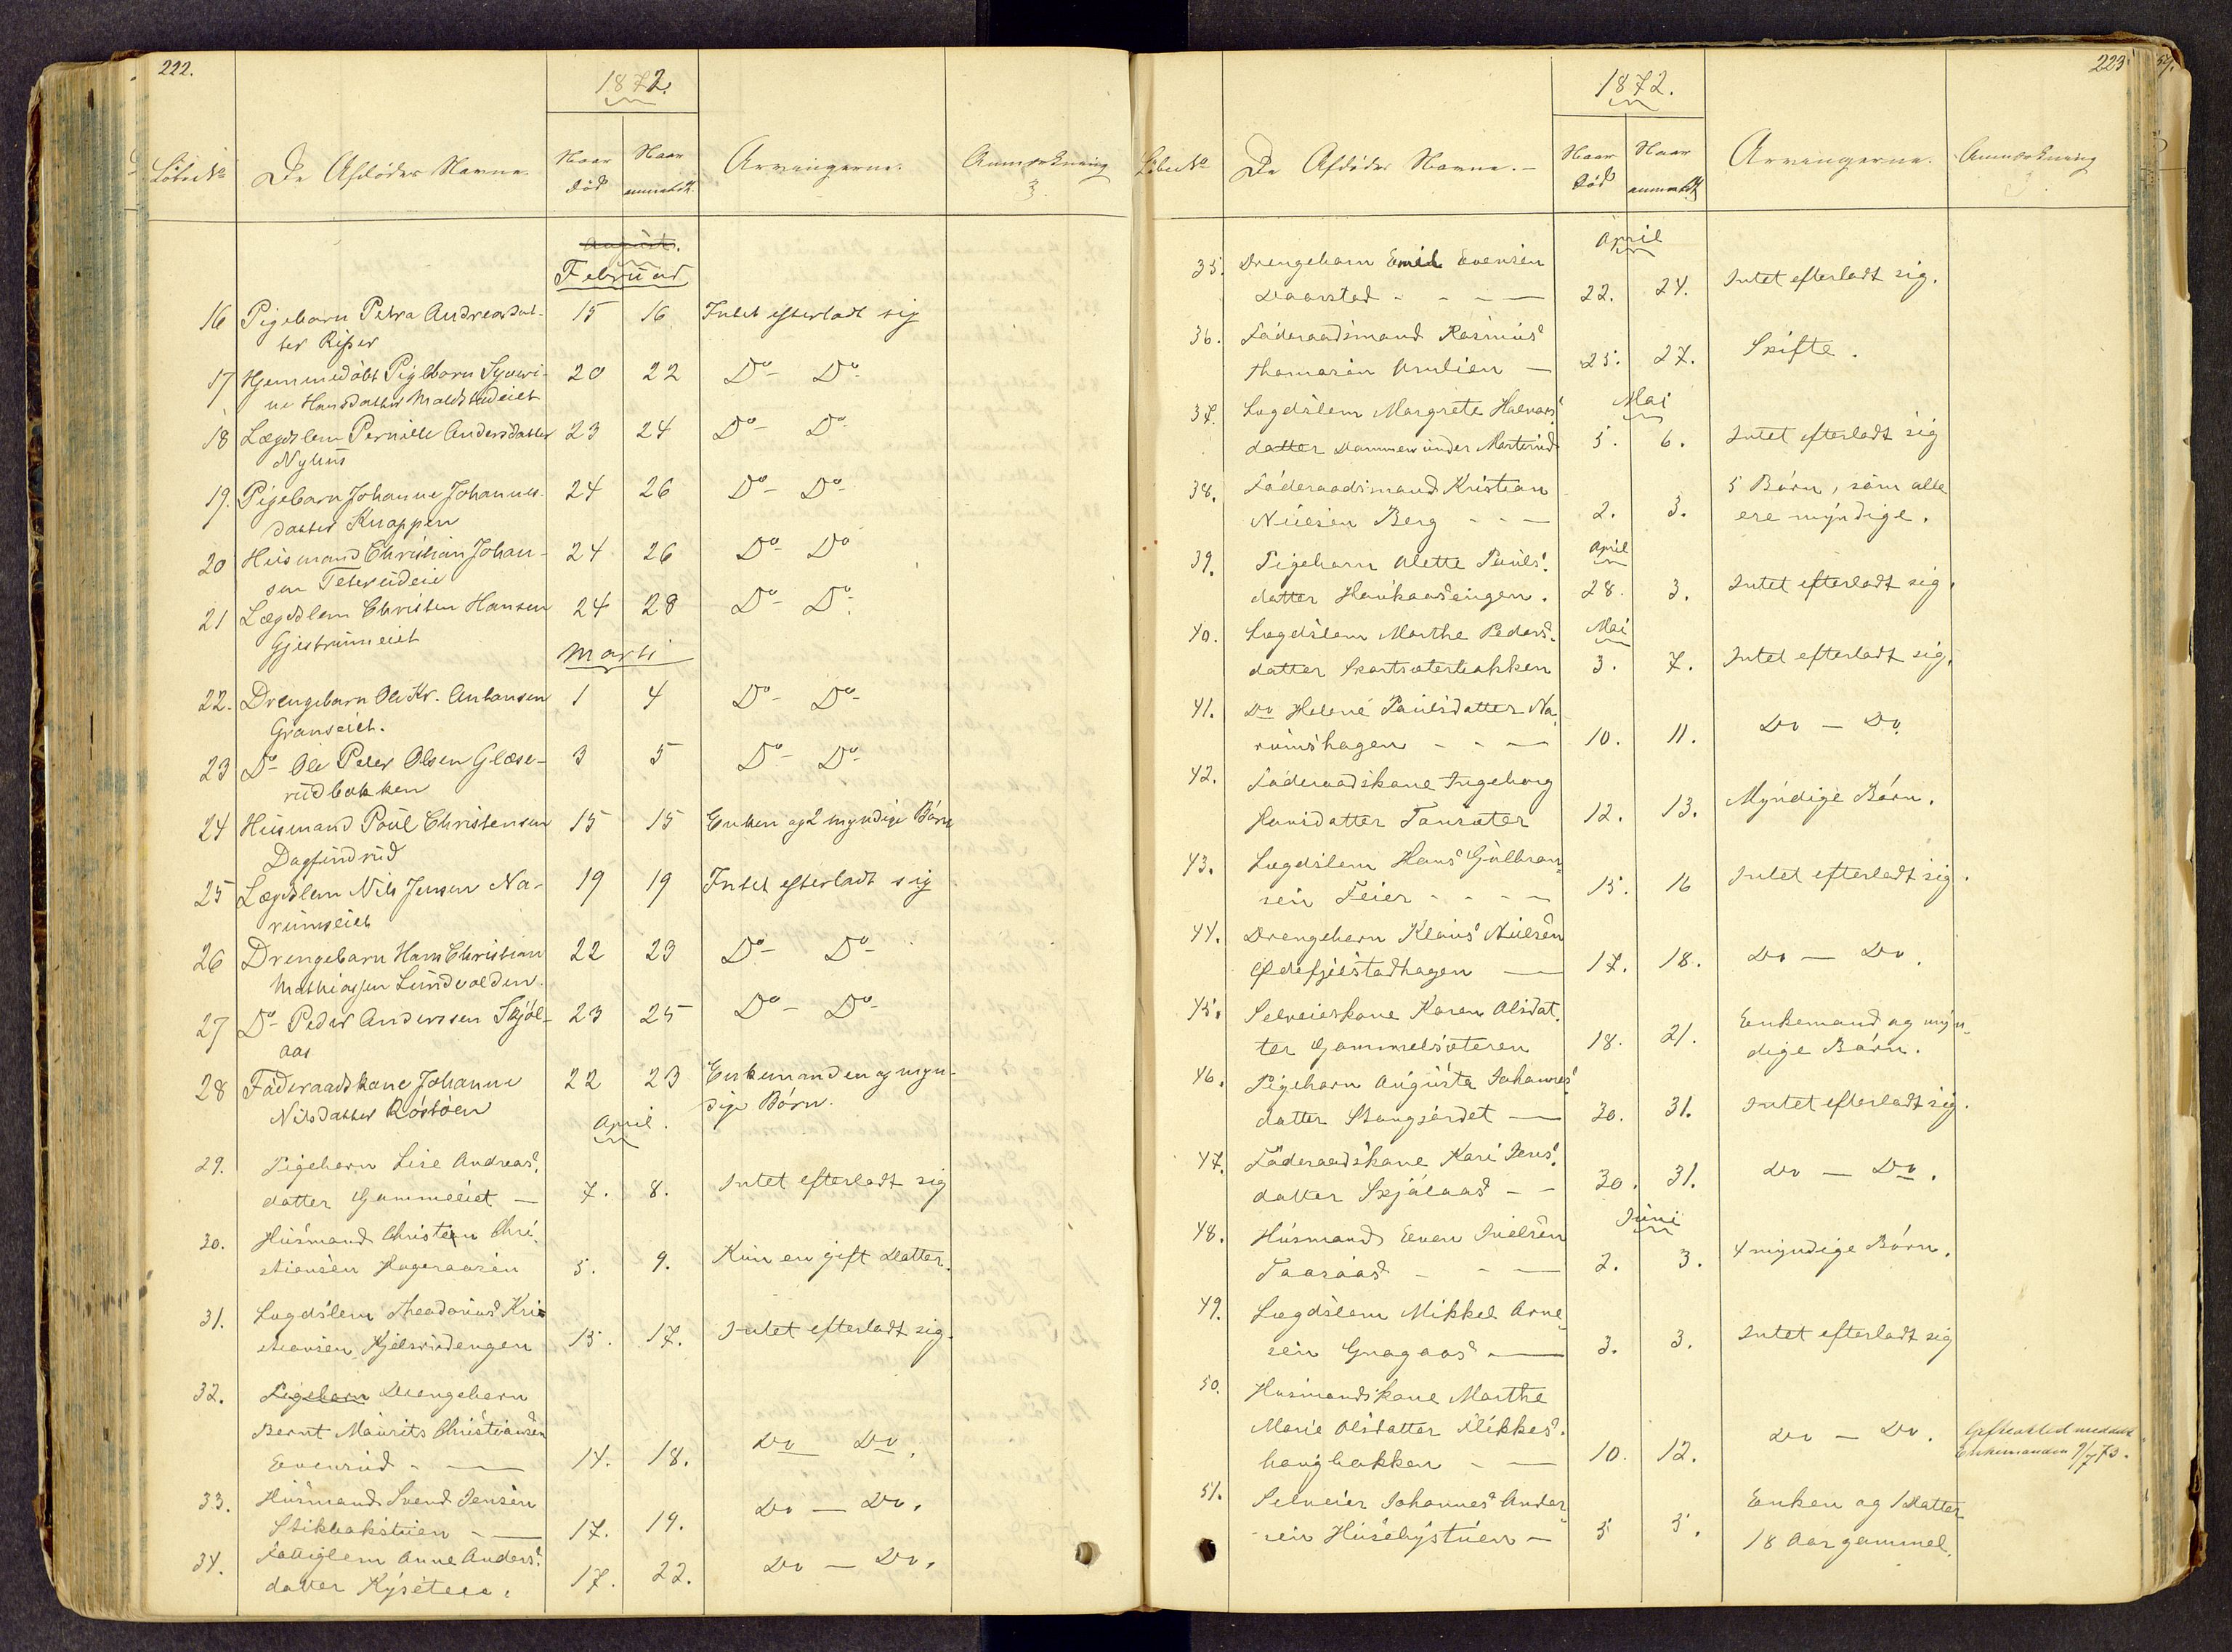 222.
1872.
Løbe No
De Afdødes Navne.
Naar død
Naar anmeldt
Arvingerne.
Anmærkning
August.
Februar
16 Pigebarn Petra Andreasdat-
ter Risser
15 16 Intet efterladt sig
17 Hjemmedøbt Pigebarn
ne Hansdatter
20 22 Do- Do-
18 Lægdslem Pernille Andersdatter
Nyhus
23 24 Do- Do-
19. Pigebarn Johanne Johannes-
datter Knappen
24 26 Do- Do-
20 Husmand Christian Johan-
sen
24 26 Do- Do
21 Lægdslem Christen Hansen
Gjestrumeiet
24 28 Do- Do-
Marti
22. Drengebarn Ole Kr. Antonsen
Granseiet.
1 4 Do- Do-
23 Do- Ole Peter Olsen Glæse-
rudbakken
3 5 Do- Do-
24 Husmand Poul Christensen
Dagfindrud
15 15 Enken og 2 myndige Børn
25 Lægdslem Nils Jensen Na-
rumseiet
19 19 Intet efterladt sig
26 Drengebarn Hans Christian
Mathiassen Lundvolden.
22 23 Do- Do-
27 Do- Peder Andersen Skjøl-
aas
23 25 Do- Do-
28 Føderaadskone Johanne
Nilsdatter Røstøen
22 23 Enkemanden og myn-
dige Børn.
April.
29. Pigebarn Lise Andreas-
datter Gammeeiet —
7. 8. Intet efterladt sig
30. Husmand Christen Chri-
stiansen Hageraasen
5. 9. Kun en gift Datter.
31. Lægdslem Theodorius Kri-
stiansen Kjølsrudengen
15. 17. Intet efterladt sig.
32. Pigebarn Drengebarn
Bernt Maurits Christiansen
Evensrud - —
14. 18. Do Do.
33. Husmand Svend Jensen
Stikbakstuen - —
17. 19. Do — Do.
34. Fattiglem Anne Anders-
datter
17. 22. Do — Do.
223
1872.
Løbe No
De Afdødes Navne.-
Naar død
Naar anmeldt
Arvingerne.
Anmærkning
April
35. Drengebarn Emil Evensen
Daarstad - - - —
22. 24. Intet efterladt sig.
36. Føderaadsmand Rasmus
Thomasen Amlien —
25. 27. Skifte.
Mai
37. Lægdslem Margrete Halvors-
datter Dammen under Morterud
5. 6. Intet efterladt sig
38. Føderaadsmand Kristian
Nielsen Berg - - —
2. 3. 5 Børn, som alle
ere myndige.
April
39. Pigebarn Olette Pauls-
datter Haukaasengen.
28. 3. Intet efterladt sig.
Mai
40. Lægdslem Marthe Peders-
datter Skartsæterbakken
3. 7. Intet efterladt sig.
41. Do Helene Paulsdatter Na-
rumshagen - - —
10. 11. Do — Do.
42. Føderaadskone Ingeborg
Hansdatter Tansæter
12. 13. Myndige Børn.
43. Lægdslem Hans Gulbran-
sen Feier - - - —
15. 16 Intet efterladt sig.
44. Drengebarn Klaus Nielsen
Ødefjelstadhagen —
17. 18. Do — Do.
45. Selveierkone Karen Olsdat-
ter Gammelsæteren
18. 21. Enkemand og myn-
dige Børn.
46. Pigebarn Augusta Johannes-
datter Stangjordet —
30. 31. Intet efterladt sig.
47. Føderaadskone Kari Jens-
datter Skjølaas - -
30. 31. Do — Do.
Juni
48. Husmand Even Nielsen
Taasaas - - —
2. 3. 4 myndige Børn.
49. Lægdslem Mikkel Arne-
sen Gnagaas —
3. 3. Intet efterladt sig
50. Husmandskone Marthe
Marie Olsdatter Flikkes-
haugbakken - —
10. 12. Do — Do. Enkemanden 9/7 73.
51. Selveier Johannes Ander-
sen Husebystuen —
5 5. Enken og 1 Datter
18 Aar gammel.